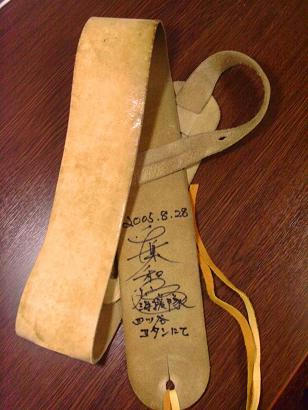 2005.8.28
海援隊
四ツ谷
コタンにて